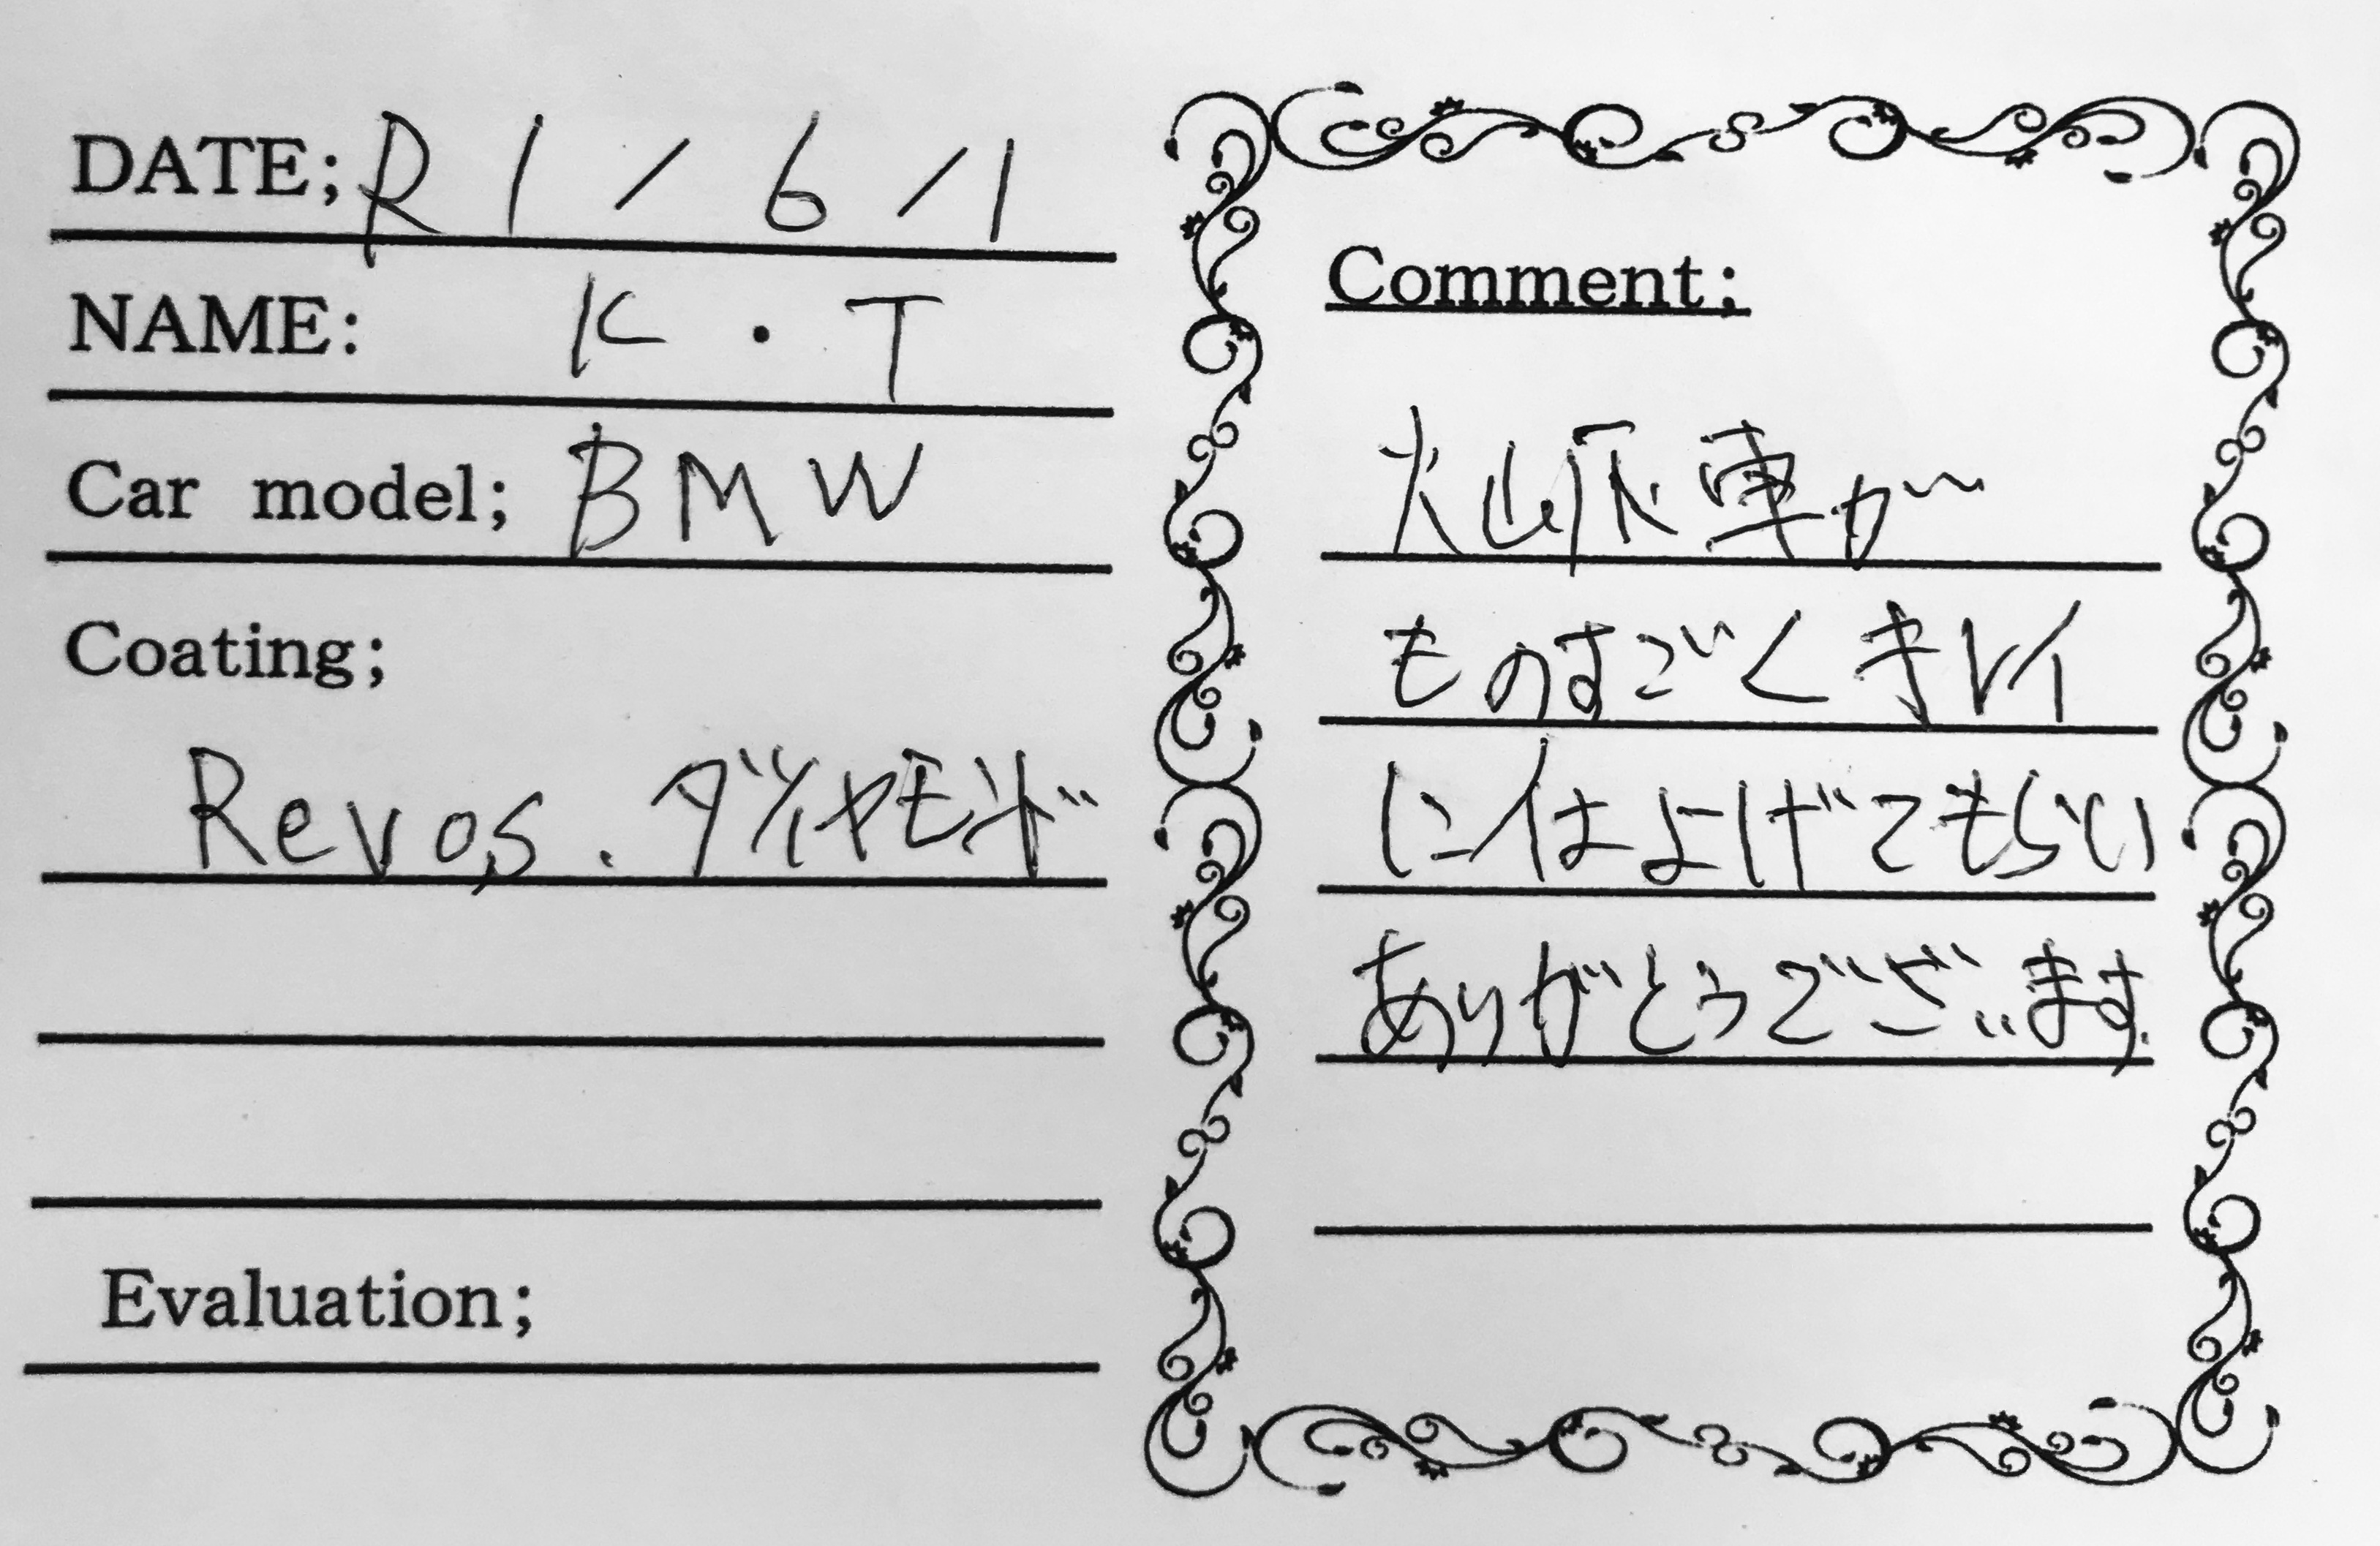 DATE; R1/6/1
NAME: K・T
Car model; BMW
Coating;
Revos.ダイヤモンド
Evaluation;
Comment;
火山灰車が
ものすごくキレイ
に仕上げてもらい
ありがとうございます.